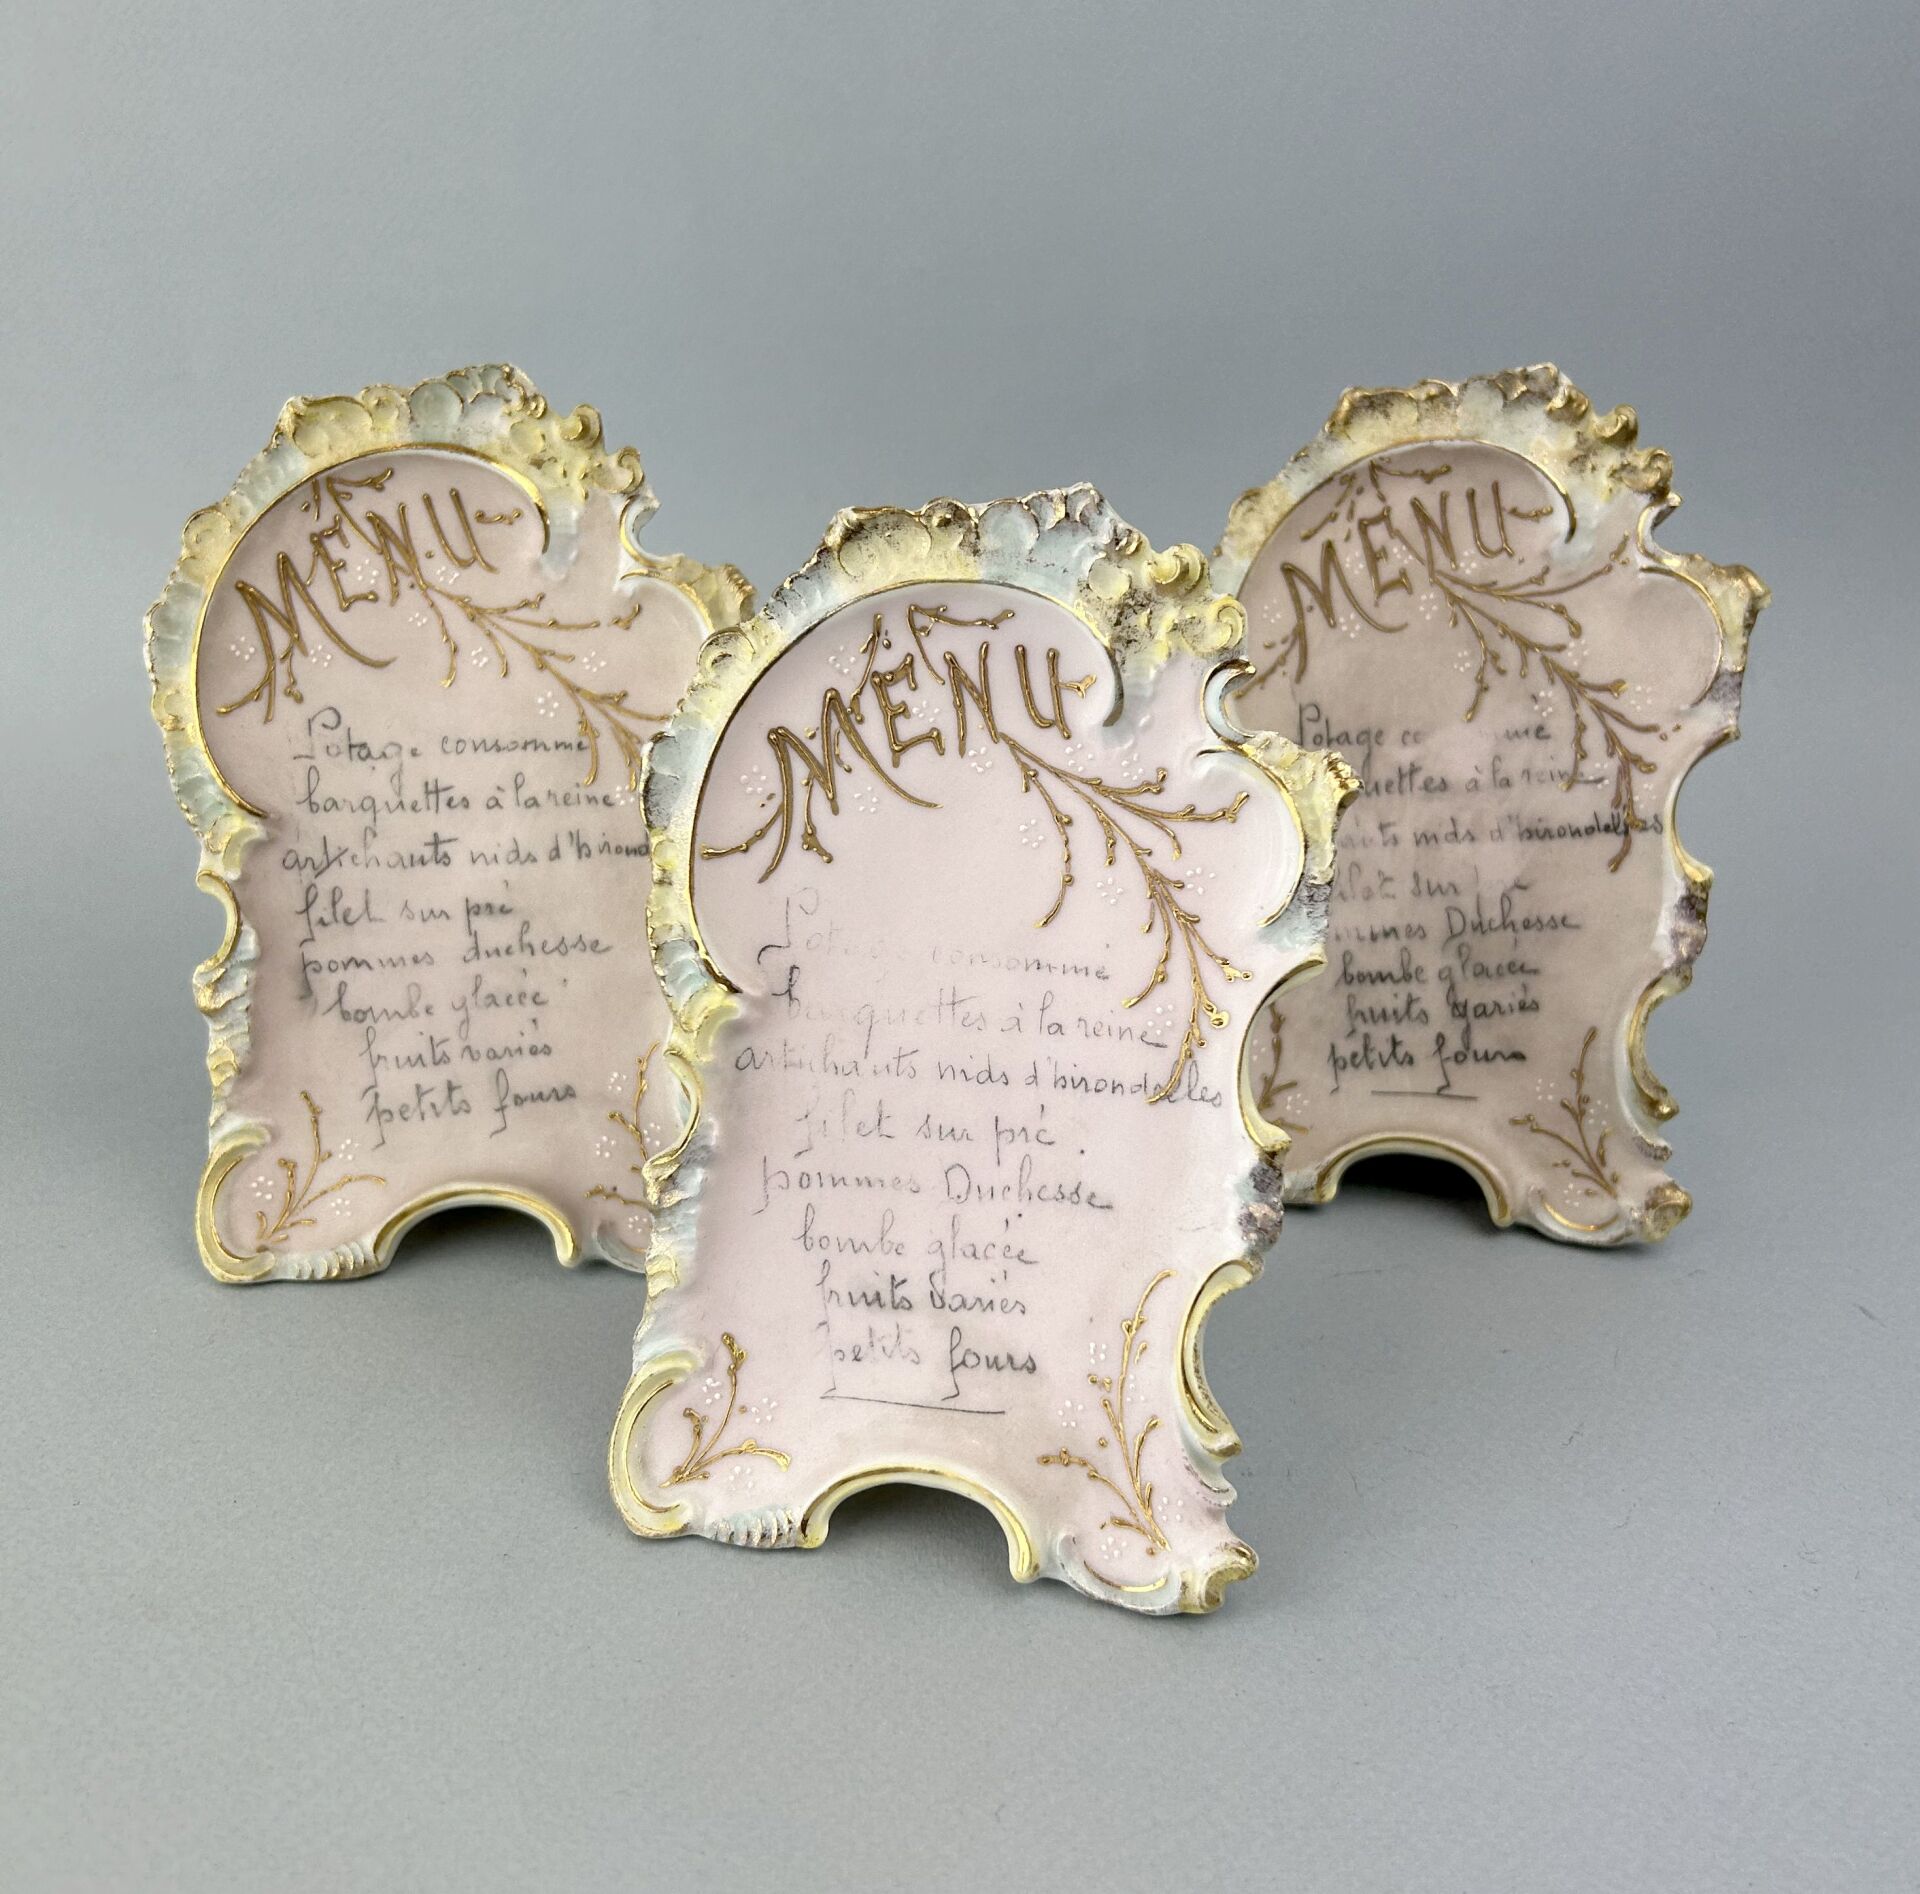 MENU
Potage consommé
barquettes à la reine
artichauts nids d'hirond
filet sur pré
pommes duchesse
bombe glacée
fruits variés
petits fours
MENU
Potage consommé
barquettes à la reine
artichauts nids d'hirondelles
filet sur pré
pommes Duchesse
bombe glacée
fruits variés
petits fours
MENU
Potage
à la reine
nids d'hirondelles
sur
Duchesse
bombe glacée
fruits variés
petits fours